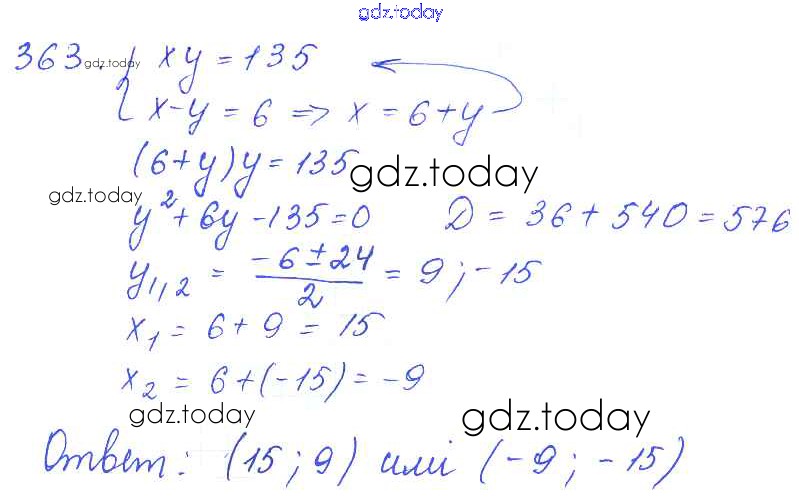 gdz.today
363. gdz.today { xy = 135
x - y = 6 => x = 6 + y
(6 + y) y = 135
gdz.today
gdz.today
y² + 6y - 135 = 0 D = 36 + 540 = 576
y₁,₂ = (-6 ± 24)/2 = 9 ; -15
x₁ = 6 + 9 = 15
x₂ = 6 + (-15) = -9
gdz.today gdz.today
Ответ: (15 ; 9) или (-9 ; -15)